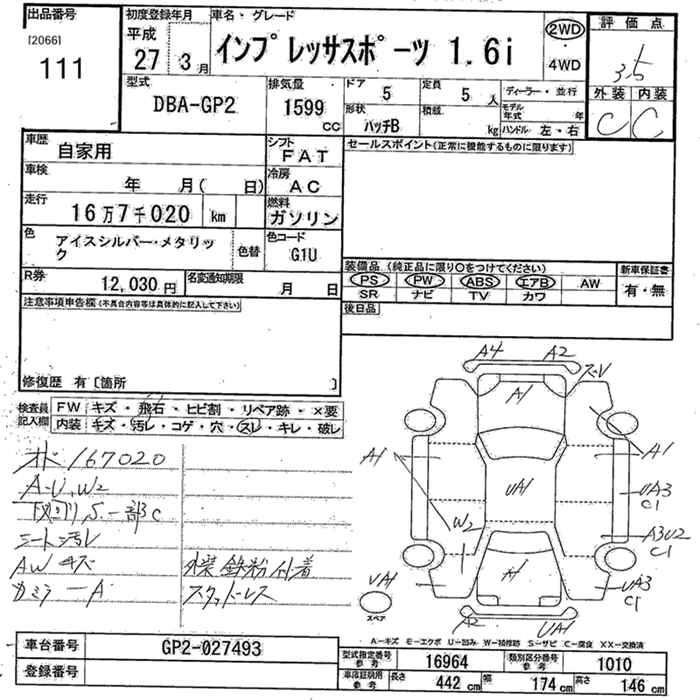 出品番号
[2066]
111
初度登録年月
平成
27 3月
車名・グレード
インプレッサスポーツ 1.6i
2WD
・
4WD
評価点
3.5
外装 内装
C C
型式
DBA-GP2
排気量
1599
CC
ドア
5
定員
5 人
形状
ハッチB
積載
kg
ディーラー・並行
モデル年式 年
ハンドル 左・右
車歴
自家用
シフト
FAT
車検
年 月( 日)
冷房
AC
走行
16万7千020 km
燃料
ガソリン
色
アイスシルバー・メタリック
色替
色コード
G1U
R券
12,030 円
名変通知期限
月 日
セールスポイント(正常に機能するものに限ります)
装備品(純正品に限り○をつけてください)
PS PW ABS エアB AW
SR ナビ TV カワ
新車保証書
有・無
後日品
注意事項申告欄(不具合内容等は具体的に記入して下さい)
修復歴 有〔箇所 〕
検査員記入欄
FW キズ・飛石・ヒビ割・リペア跡・×要
内装 キズ・汚レ・コゲ・穴・スレ・キレ・破レ
オド 167020
A・U、W2
下回りS、一部C
シート汚レ
AW キズ
外装 鉄粉付着
スタッドレス
A4 A2
A1
A1
A1
UA1
UA3
C1
W2
A3U2
C1
UA3
C1
A1
UA1
スペア
A2 UA1
A−キズ M−エクボ U−凹み W−補修跡 S−サビ C−腐食 XX−交換済
車台番号
GP2-027493
登録番号
型式指定番号 参考
16964
類別区分番号 参考
1010
車庫証明用 参考
長さ 442 cm 幅 174 cm 高さ 146 cm